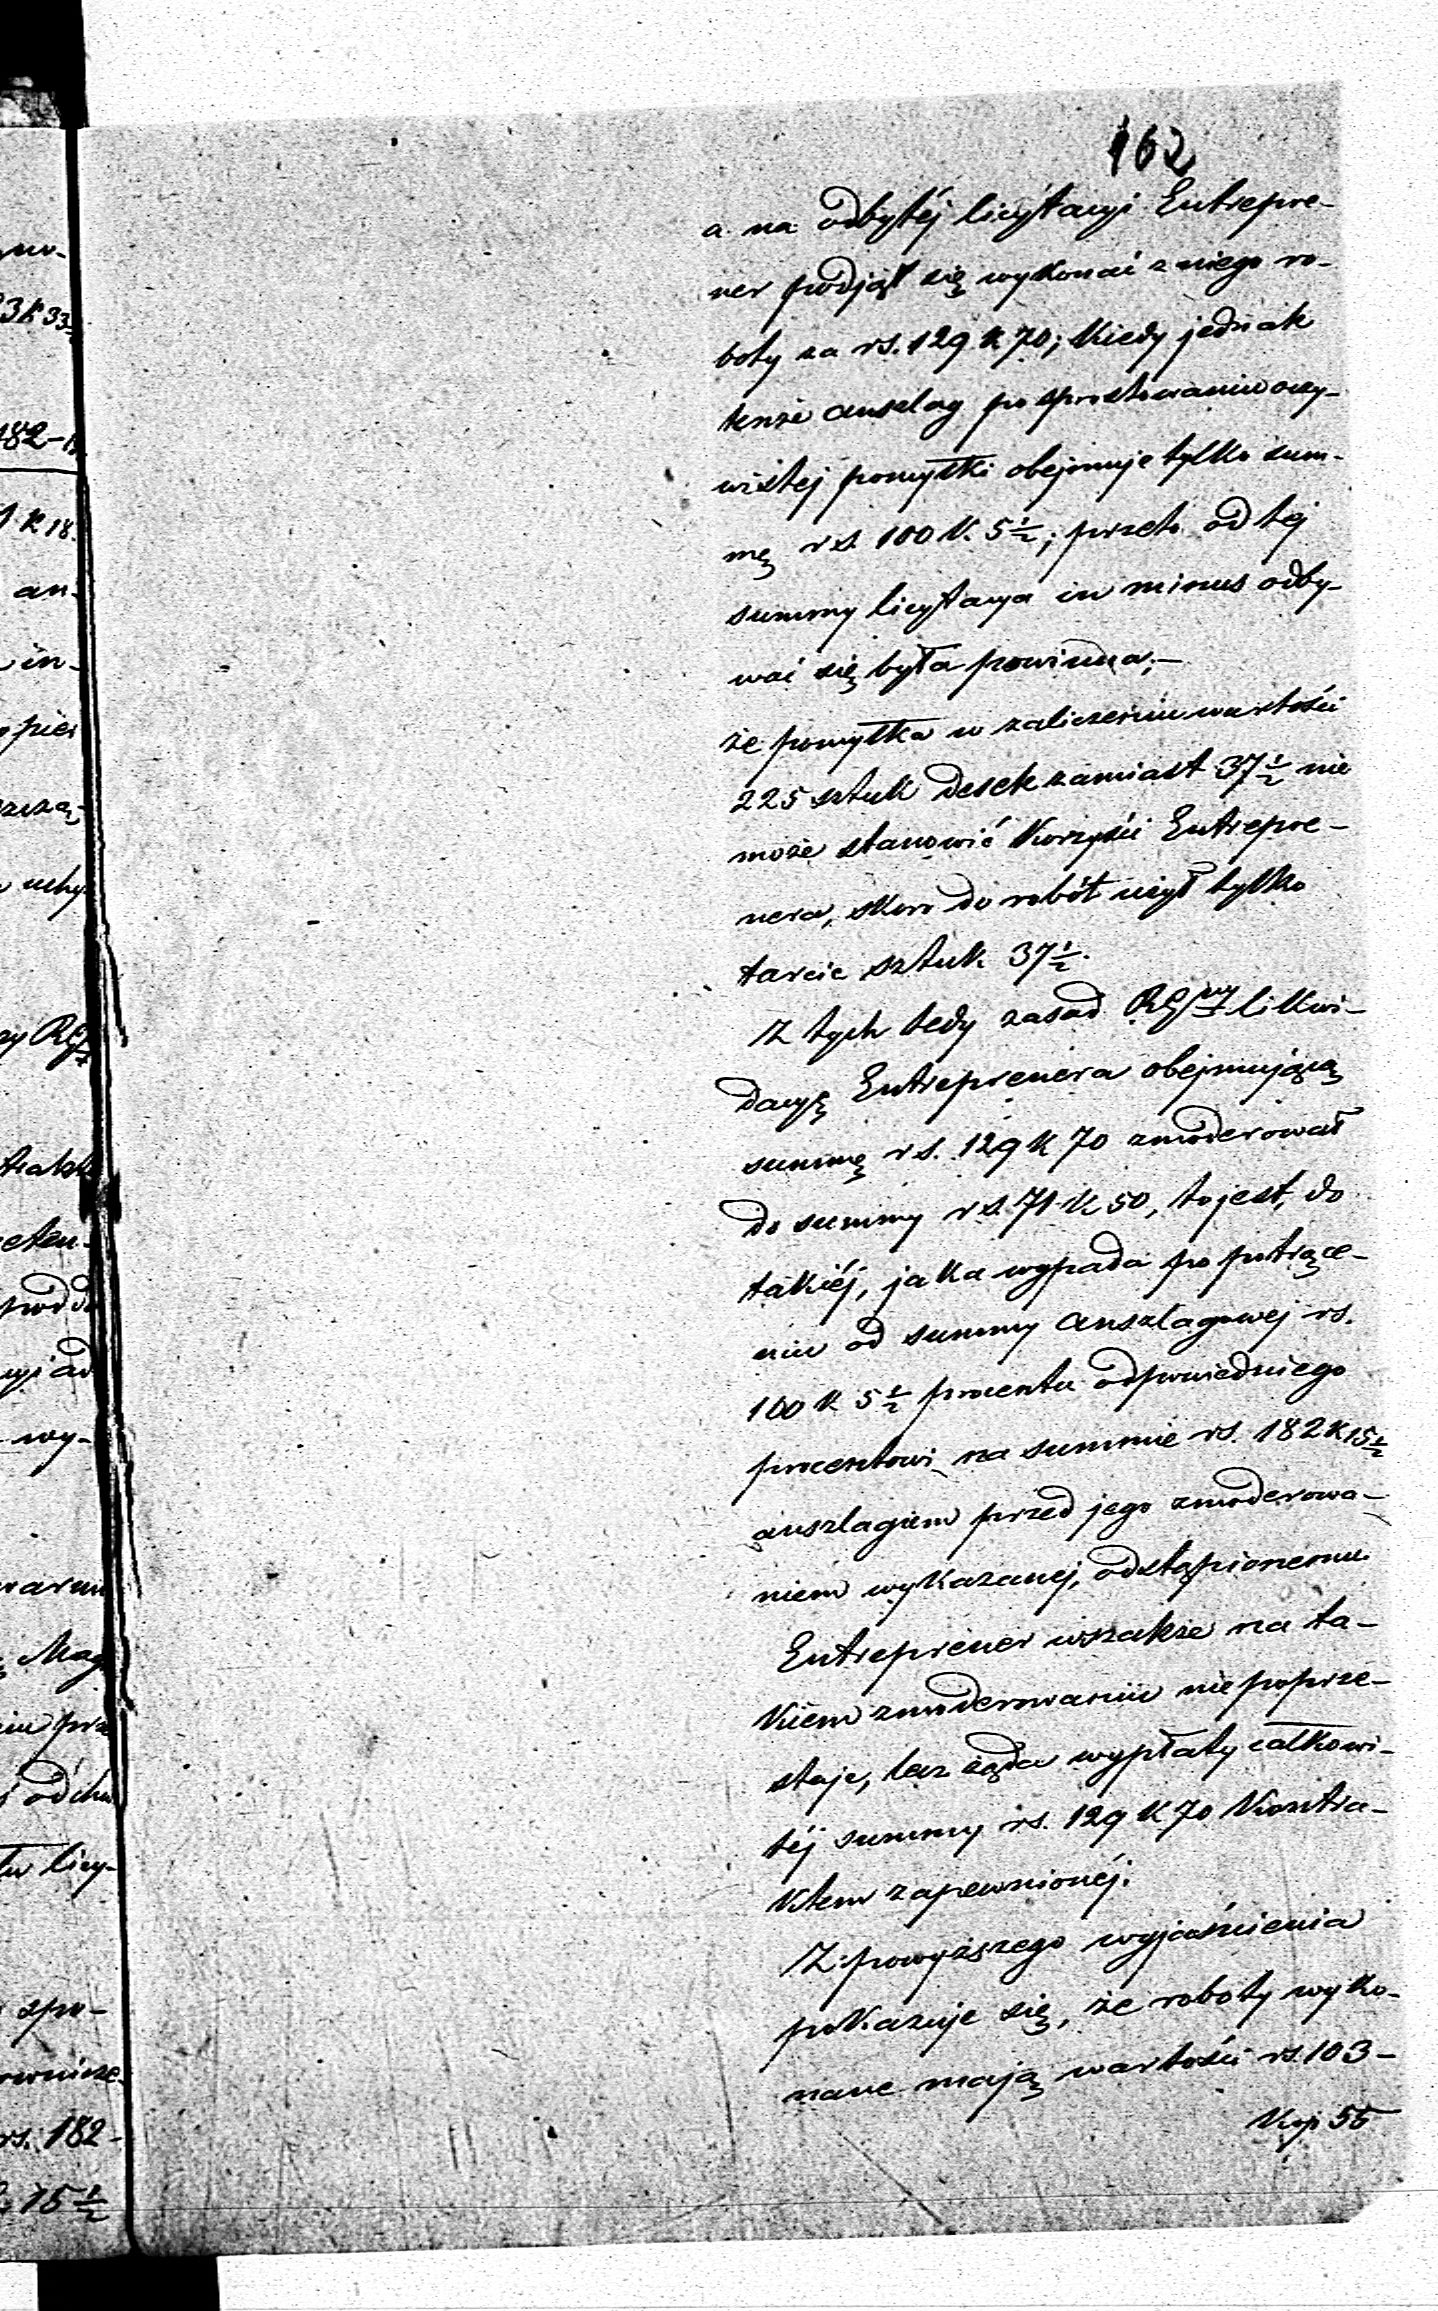 162
a na odbytéj licytacyi Entrepre-
ner podjął się wykonać z niego ro-
boty za rs. 129 k 70; kiedy jednak
tenże anszlag po sprostowaniu oczy-
wistej pomyłki obejmuje tylko sum-
mę rs. 100 k. 5½; przeto od tej
summy licytacya in minus odby-
wać się była powinna;—
że pomyłka w zaliczeniu wartości
225 sztuk desek zamiast 37½ nie
może stanowić korzyści Entrepre-
nera, skoro do robót użył tylko
tarcic sztuk 37½.
Z tych tedy zasad RGwy likwi-
dacyę Entreprenera obejmującą
summę rs. 129 k 70 zmoderował
do summy rs. 71 k 50, to jest, do
takiéj, jaka wypada po potrące-
niu od summy anszlagowej rs.
100 k 5½ procentu odpowiedniego
procentowi na summie rs. 182 k 15½
anszlagiem przed jego zmoderowa-
niem wykazanej, odstąpionemu.
Entreprener wszakże na ta-
kiem zmoderowaniu nie poprze-
staje, lecz żąda wypłaty całkowi-
téj summy rs. 129 k 70 kontra-
ktem zapewnionéj.
Z powyższego wyjaśnienia
pokazuje się, że roboty wyko-
nane mają wartości rs. 103-
kop 55